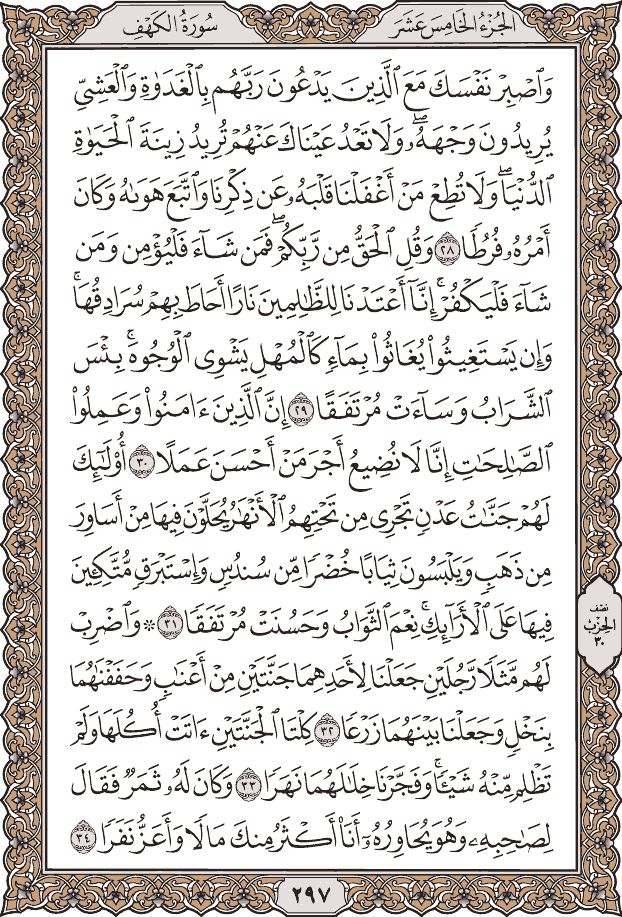 الجزء الخامس عشر
سورة الكهف
وَٱصْبِرْ نَفْسَكَ مَعَ ٱلَّذِينَ يَدْعُونَ رَبَّهُم بِٱلْغَدَوٰةِ وَٱلْعَشِىِّ
يُرِيدُونَ وَجْهَهُۥۖ وَلَا تَعْدُ عَيْنَاكَ عَنْهُمْ تُرِيدُ زِينَةَ ٱلْحَيَوٰةِ
ٱلدُّنْيَاۖ وَلَا تُطِعْ مَنْ أَغْفَلْنَا قَلْبَهُۥ عَن ذِكْرِنَا وَٱتَّبَعَ هَوَىٰهُ وَكَانَ
أَمْرُهُۥ فُرُطًا ٢٨ وَقُلِ ٱلْحَقُّ مِن رَّبِّكُمْۖ فَمَن شَآءَ فَلْيُؤْمِن وَمَن
شَآءَ فَلْيَكْفُرْۚ إِنَّآ أَعْتَدْنَا لِلظَّٰلِمِينَ نَارًا أَحَاطَ بِهِمْ سُرَادِقُهَاۚ
وَإِن يَسْتَغِيثُوا۟ يُغَاثُوا۟ بِمَآءٍ كَٱلْمُهْلِ يَشْوِى ٱلْوُجُوهَۚ بِئْسَ
ٱلشَّرَابُ وَسَآءَتْ مُرْتَفَقًا ٢٩ إِنَّ ٱلَّذِينَ ءَامَنُوا۟ وَعَمِلُوا۟
ٱلصَّٰلِحَٰتِ إِنَّا لَا نُضِيعُ أَجْرَ مَنْ أَحْسَنَ عَمَلًا ٣٠ أُو۟لَٰٓئِكَ
لَهُمْ جَنَّٰتُ عَدْنٍ تَجْرِى مِن تَحْتِهِمُ ٱلْأَنْهَٰرُ يُحَلَّوْنَ فِيهَا مِنْ أَسَاوِرَ
مِن ذَهَبٍ وَيَلْبَسُونَ ثِيَابًا خُضْرًا مِّن سُندُسٍ وَإِسْتَبْرَقٍ مُّتَّكِـِٔينَ
فِيهَا عَلَى ٱلْأَرَآئِكِۚ نِعْمَ ٱلثَّوَابُ وَحَسُنَتْ مُرْتَفَقًا ٣١ ۞ وَٱضْرِبْ
لَهُم مَّثَلًا رَّجُلَيْنِ جَعَلْنَا لِأَحَدِهِمَا جَنَّتَيْنِ مِنْ أَعْنَٰبٍ وَحَفَفْنَٰهُمَا
بِنَخْلٍ وَجَعَلْنَا بَيْنَهُمَا زَرْعًا ٣٢ كِلْتَا ٱلْجَنَّتَيْنِ ءَاتَتْ أُكُلَهَا وَلَمْ
تَظْلِم مِّنْهُ شَيْـًٔاۚ وَفَجَّرْنَا خِلَٰلَهُمَا نَهَرًا ٣٣ وَكَانَ لَهُۥ ثَمَرٌ فَقَالَ
لِصَٰحِبِهِۦ وَهُوَ يُحَاوِرُهُۥٓ أَنَا۠ أَكْثَرُ مِنكَ مَالًا وَأَعَزُّ نَفَرًا ٣٤
نصف
الحزب
٣٠
٢٩٧